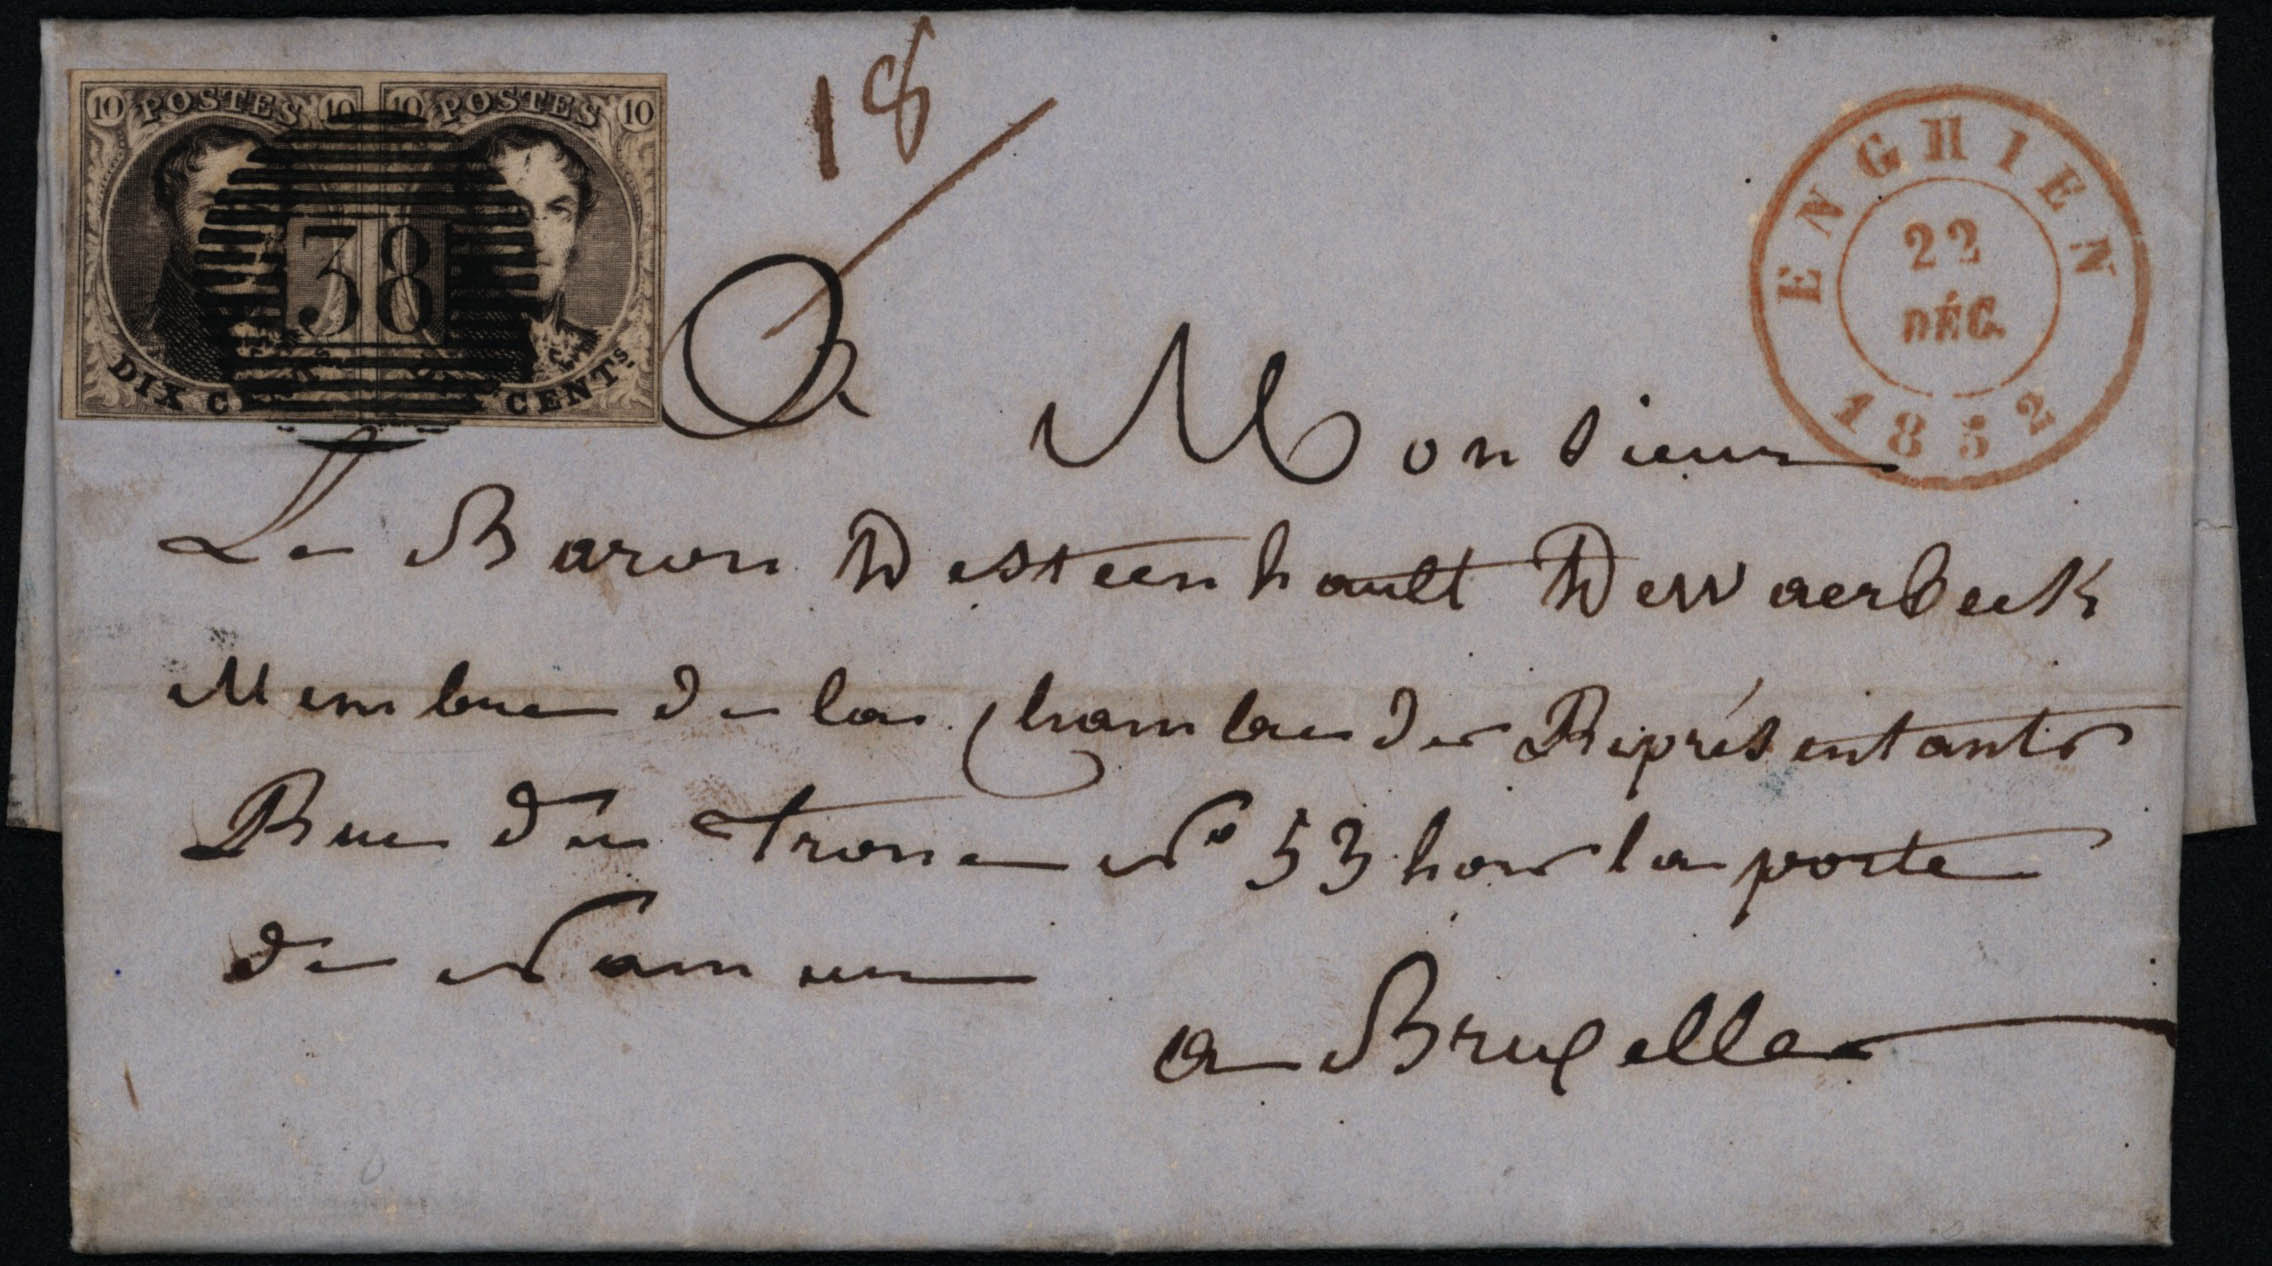 10 POSTES 10 10 POSTES 10
18
38
DIX CENTs. CENTs.
ENGHIEN
22
DÉC.
1852
A Monsieur
Le Baron Desteenhault Dewaerbeek
Membre de la Chambre des Représentants
Rue du Trone No 53 hors la porte
de Namur
a Bruxelles